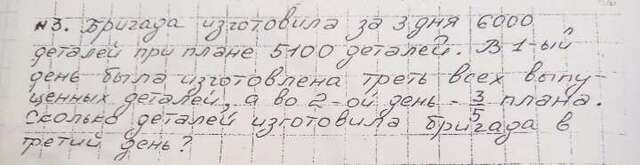 №3. Бригада изготовила за 3 дня 6000
деталей при плане 5100 деталей. В 1-ый
день была изготовлена треть всех выпу-
щенных деталей, а во 2-ой день - 3/5 плана.
Сколько деталей изготовила бригада в
третий день?